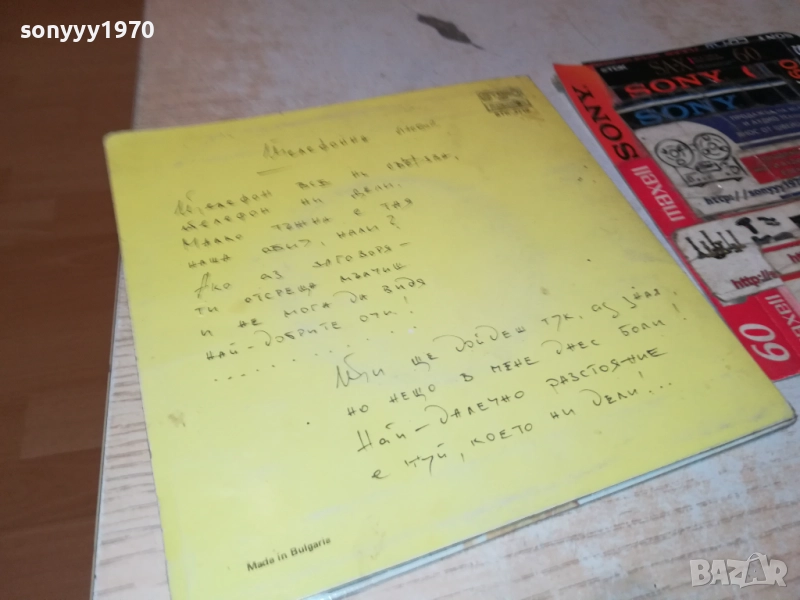 sonyyy1970
Телефонна любов
Телефон ни
телефон ни дели.
Малко тъжна е тая
наша обич, нали?
Ако аз заговоря –
ти отсреща мълчиш
и не мога да видя
най-добрите очи!
Ти ще дойдеш тук, аз зная,
но нещо в мене днес боли!
Най-далечно разстояние
е туй, което ни дели!...
Made in Bulgaria
SONY
SONY
SONY
60
maxell
maxell
60
BAZAR